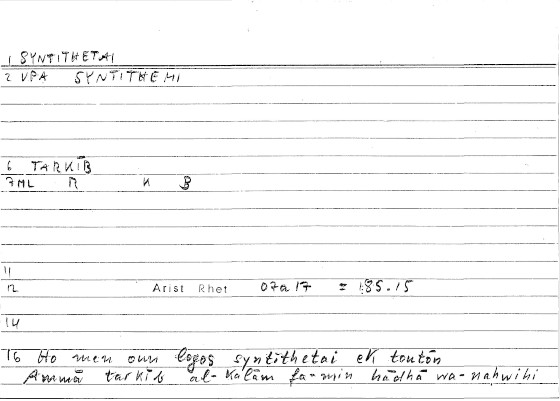 1 SYNTITHETAI
2 VPA SYNTITHEMI
6 TARKĪB
7ML R K B
11
12 Arist Rhet 07a17 = 185.15
14
16 Ho men oun logos syntithetai ek toutōn
Ammā tarkīb al-kalām fa-min hādhā wa-nahwihi